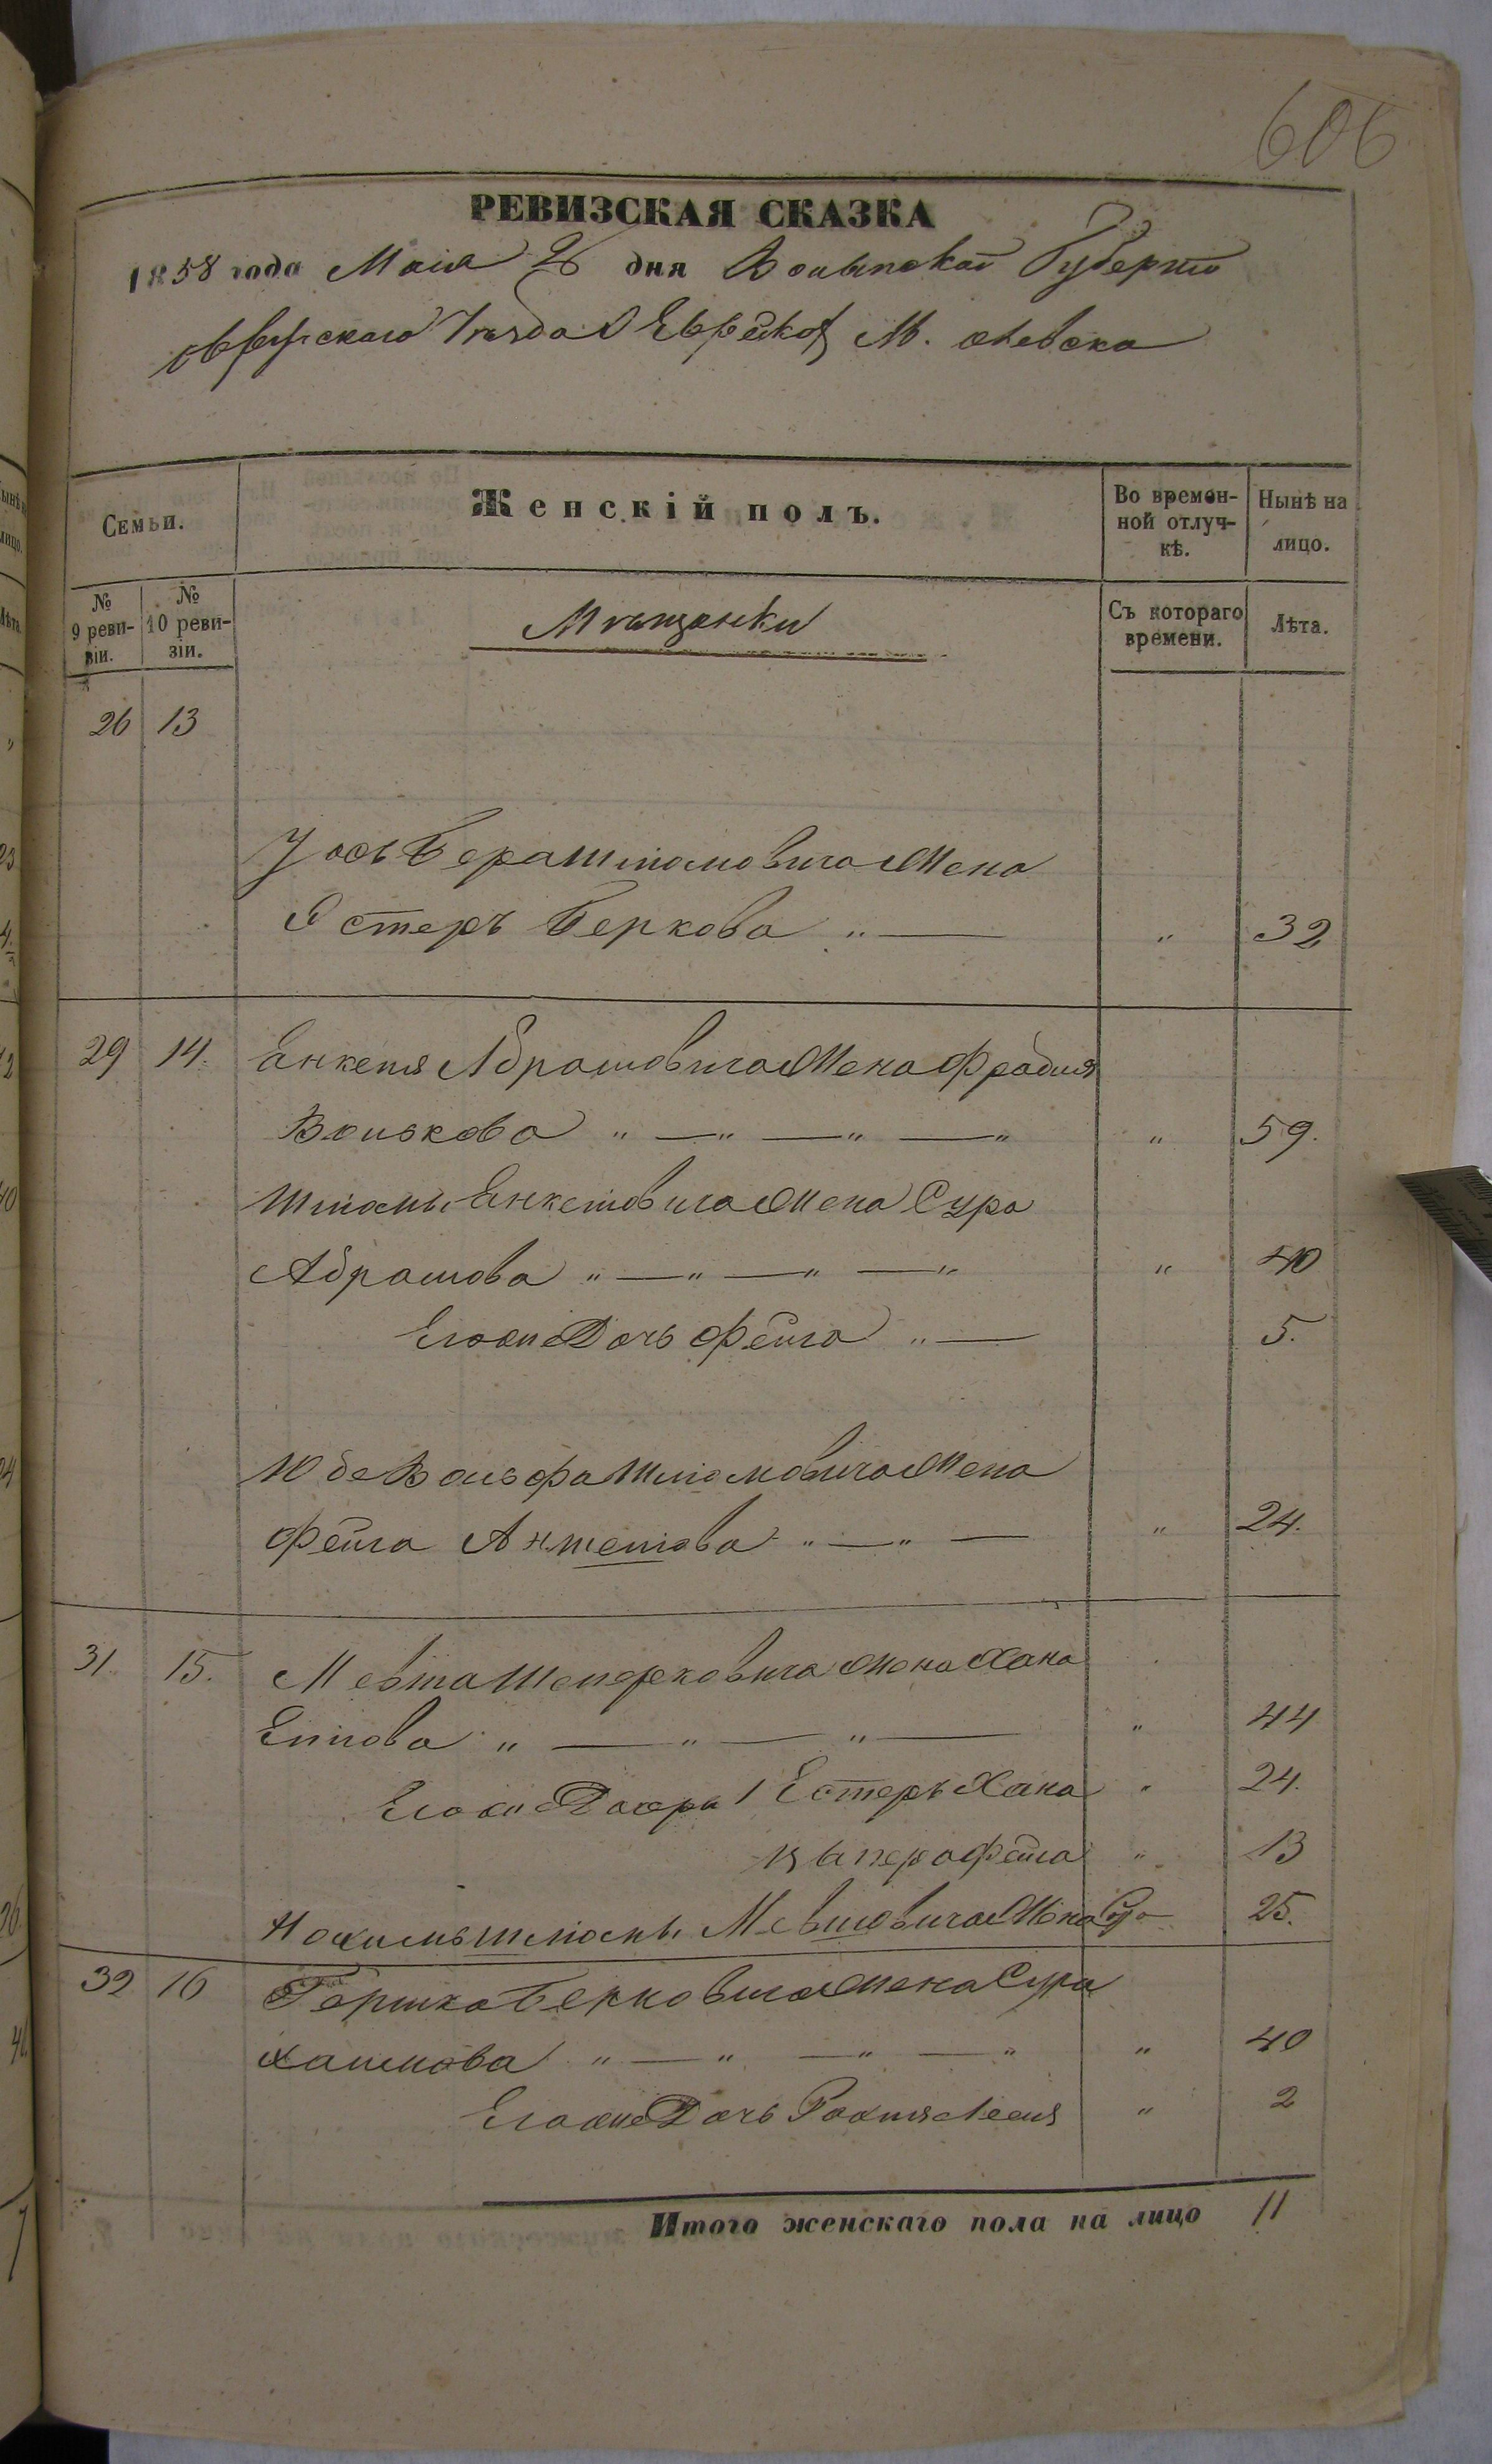 606
РЕВИЗСКАЯ СКАЗКА
1858 года Маія 26 дня Волынской Губерніи
Овручскаго Уѣзда О Еврейков М. Олевска
Семьи.
Женскій полъ.
Во времен-
ной отлуч-
кѣ.
Нынѣ на
лицо.
№
9 реви-
зіи.
№
10 реви-
зіи.
Мѣщанки
Съ котораго
времени.
Лѣта.
26 13
Іось Бера Шліомовича Жена
Эстеръ Беркова " — " 32
29 14. Енкеля Абрамовича Жена Фрадля
Волькова " — " — " — " " 59.
Шліомы Енкелiовича Жена Сура
Абрамова " — " — " — " " 40
Егоже Дочь Фейга " — 5.
Юде Вольфа Шліомовича Жена
Фейга Аншелiова " — " — " 24.
31. 15. Жена Хана
" — " — " — " 44
Егоже Дочери 1 Естеръ Хана " 24.
Фейга " 13
Шліомы Жена Сура 25.
32 16 Гершка Берковича Жена Сура
" — " — " — " " 40
Егоже Дочь Рохля Лея " 2
Итого женскаго пола на лицо 11